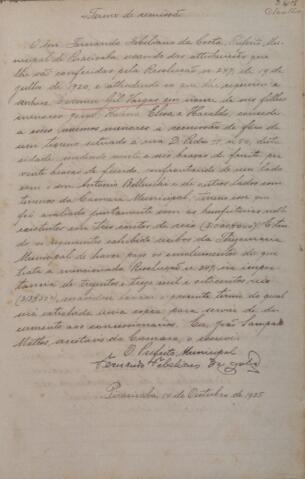 Termo de remissão
O dor. Fernando Febeliano da Costa, Prefeito Mu-
nicipal de Piracicaba, usando das attribuições que
lhe são conferidas pela Resolução n 247, de 19 de
julho de 1920, e attendendo ao que lhe requereu a
senhora Gil Vargas em nome de seus filhos
menores Elvira e Haroldo, concede
a esses mesmos menores a remissão do fôro de
um terreno situado á rua D. Pedro II n 50, desta
cidade, medindo braças de frente por
vinte braças de fundo, confrontando de um lado
com o snr. Antonio e de outros lados com
terrenos da Camara Municipal, terreno esse que
foi avaliado juntamente com as bemfeitorias nelle
existentes em tres contos de reis (3:000$000). E ten-
do os requerentes exhibido recibo da Thesouraria
Municipal de haver pago os emolumentos de que
trata a mencionada Resolução n 247, na impor-
tancia de trinta e tres mil e oitocentos reis
mandou lavrar o presente termo do qual
será extrahida uma copia para servir de do-
cumento aos concessionarios. Eu, João Sampaio
Mattos, da Camara, o escrevi.
O Prefeito Municipal
Fernando Febeliano da Costa
Piracicaba, 10 de Outubro de 1925